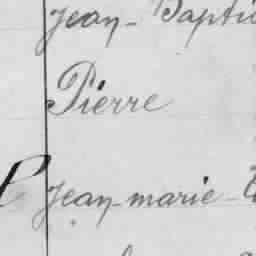 Jean-Bapti
Pierre
P Jean-marie-